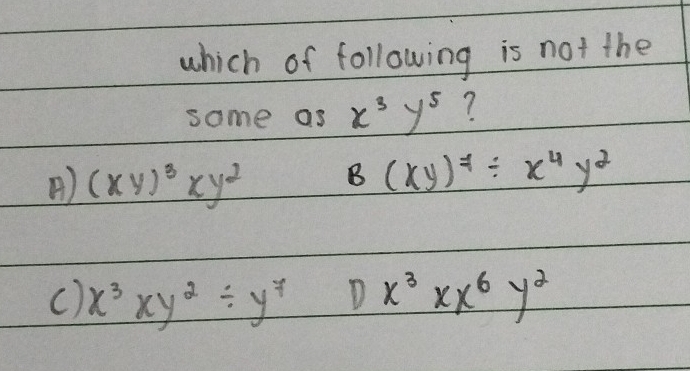 which of following is not the
same as x³ y⁵ ?
A) (xy)³ xy² B (xy)⁷ ÷ x⁴ y²
C) x³ xy² ÷ y⁷ D x³ xx⁶ y²